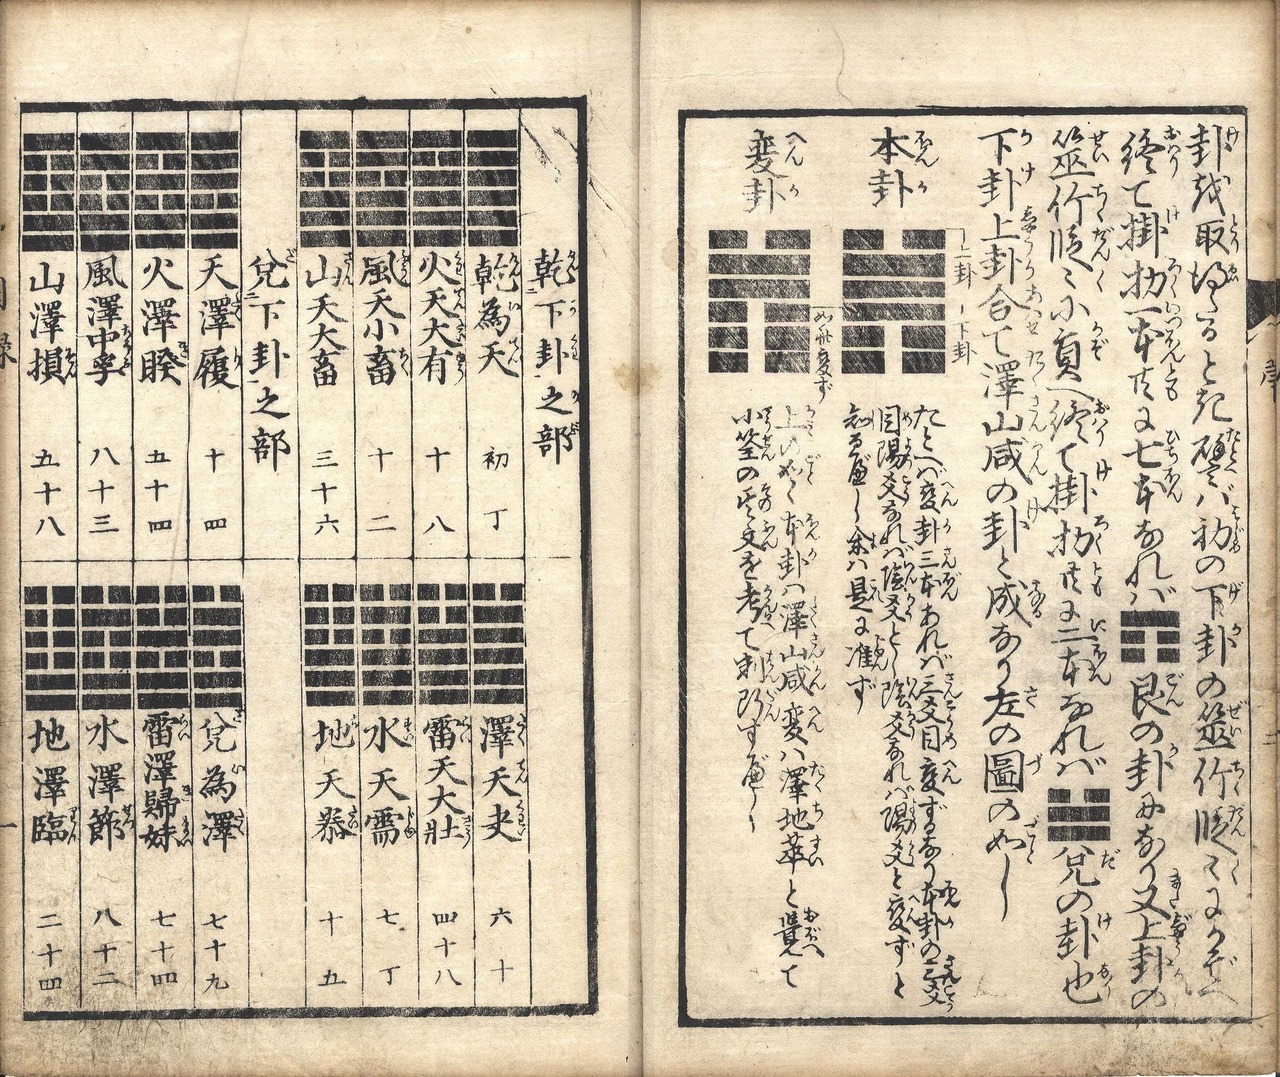 卦を取得ると起譬バ初の下卦の筮竹段々にかぞへ
終て掛扐一本共に七本なれバ艮の卦になり又上卦の
筮竹段々小算へ終て掛扐共に二本なれバ兌の卦也
下卦上卦合て澤山咸の卦と成なり左の圖の如し
本卦
上卦
下卦
たとへバ変卦三本あれバ三爻目変ずるなり本卦の三爻
目陽爻なれバ陰爻とし陰爻なれバ陽爻と変ずと
知る邊し余は是に准ず
変卦
如此変ず
上の如く本卦ハ澤山咸変ハ澤地萃と覺へて
小筮の文を考て判断す邊し
乾下卦之部
乾為天 初丁
火天大有 十八
風天小畜 十二
山天大畜 三十六
兌下卦之部
天澤履 十四
火澤睽 五十四
風澤中孚 八十三
山澤損 五十八
澤天夬 六十
雷天大壯 四十八
水天需 七丁
地天泰 十五
兌為澤 七十九
雷澤歸妹 七十四
水澤節 八十二
地澤臨 二十四
目錄
一